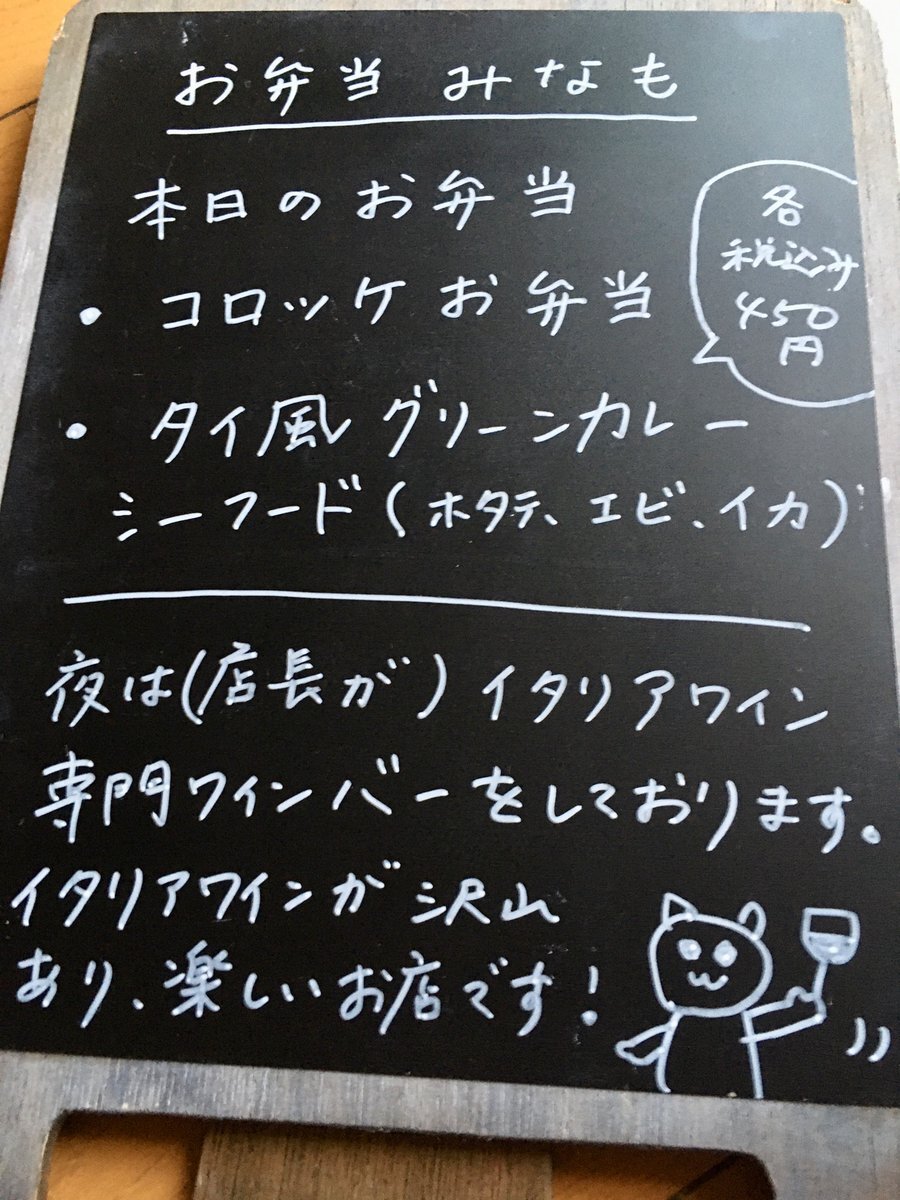 お弁当 みなも
本日のお弁当
各
税込み
450
円
・コロッケお弁当
・タイ風グリーンカレー
シーフード(ホタテ、エビ、イカ)
夜は(店長が)イタリアワイン
専門ワインバーをしております。
イタリアワインが沢山
あり、楽しいお店です!